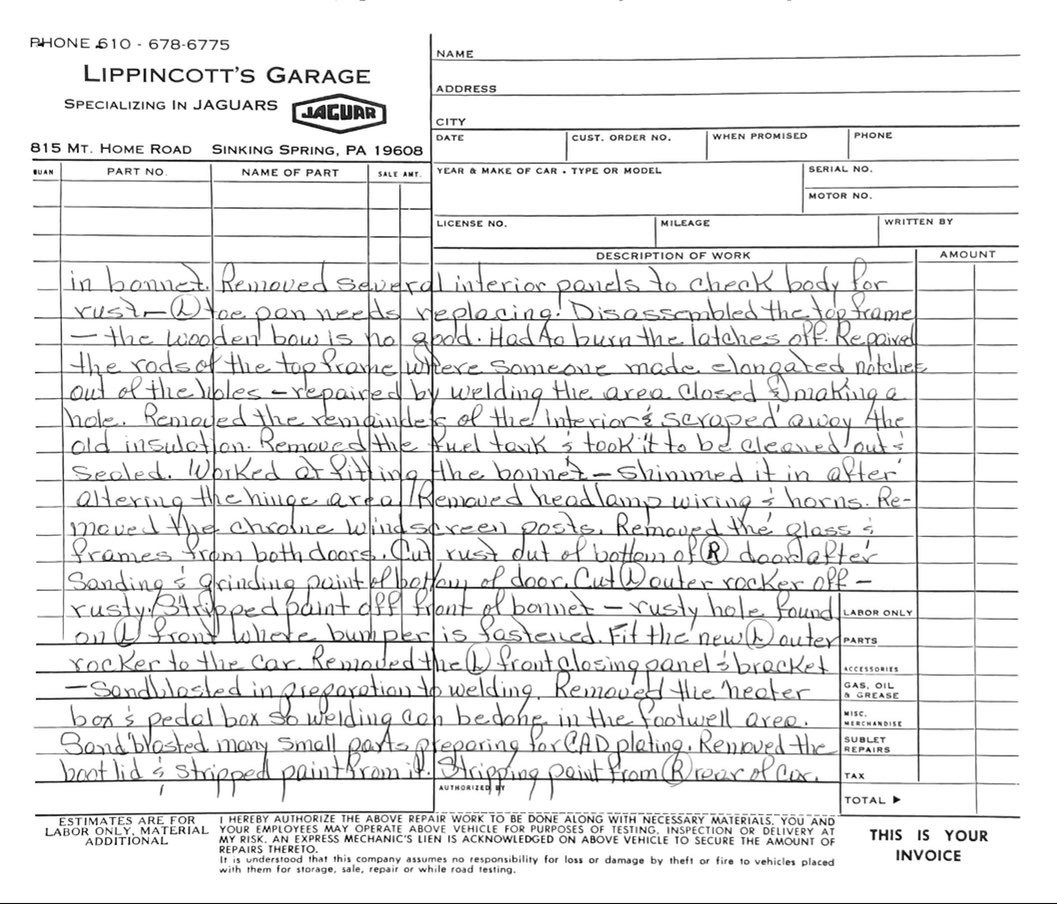 PHONE 610 - 678-6775
LIPPINCOTT'S GARAGE
SPECIALIZING IN JAGUARS JAGUAR
815 MT. HOME ROAD SINKING SPRING, PA 19608
NAME
ADDRESS
CITY
DATE CUST. ORDER NO. WHEN PROMISED PHONE
QUAN PART NO. NAME OF PART SALE AMT.
YEAR & MAKE OF CAR - TYPE OR MODEL SERIAL NO.
MOTOR NO.
LICENSE NO. MILEAGE WRITTEN BY
DESCRIPTION OF WORK AMOUNT
in bonnet. Removed several interior panels to check body for
rust - (L) toe pan needs replacing. Disassembled the top frame
- the wooden bow is no good. Had to burn the latches off. Repaired
the rods of the top frame where someone made elongated notches
out of the holes - repaired by welding the area closed & making a
hole. Removed the remainders of the interior & scraped away the
old insulation. Removed the fuel tank & took it to be cleaned out &
sealed. Worked at fitting the bonnet - shimmed it in after
altering the hinge area. Removed headlamp wiring & horns. Re-
moved the chrome windscreen posts. Removed the glass &
frames from both doors. Cut rust out of bottom of (R) door after
sanding & grinding paint of bottom of door. Cut (L) outer rocker off -
rusty. Stripped paint off front of bonnet - rusty hole found
on (L) front where bumper is fastened. Fit the new (L) outer
rocker to the car. Removed the (L) front closing panel & bracket
- Sandblasted in preparation to welding. Removed the heater
box & pedal box so welding can be done in the footwell area.
Sandblasted many small parts preparing for CAD plating. Removed the
boot lid & stripped paint from it. Stripping paint from (R) rear of car.
LABOR ONLY
PARTS
ACCESSORIES
GAS, OIL
& GREASE
MISC.
MERCHANDISE
SUBLET
REPAIRS
TAX
TOTAL ▶
AUTHORIZED BY
ESTIMATES ARE FOR
LABOR ONLY, MATERIAL
ADDITIONAL
I HEREBY AUTHORIZE THE ABOVE REPAIR WORK TO BE DONE ALONG WITH NECESSARY MATERIALS. YOU AND
YOUR EMPLOYEES MAY OPERATE ABOVE VEHICLE FOR PURPOSES OF TESTING, INSPECTION OR DELIVERY AT
MY RISK. AN EXPRESS MECHANIC'S LIEN IS ACKNOWLEDGED ON ABOVE VEHICLE TO SECURE THE AMOUNT OF
REPAIRS THERETO.
It is understood that this company assumes no responsibility for loss or damage by theft or fire to vehicles placed
with them for storage, sale, repair or while road testing.
THIS IS YOUR
INVOICE